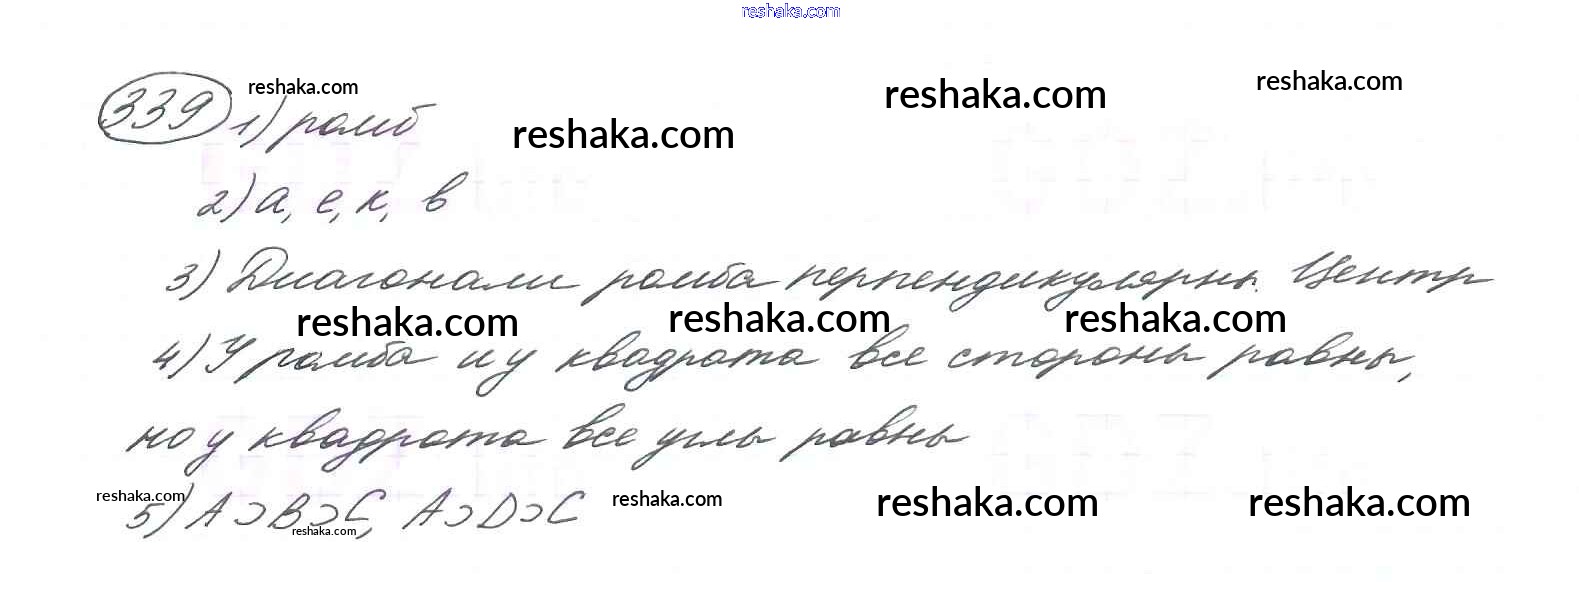 reshaka.com
339 1) ромб
reshaka.com
reshaka.com
reshaka.com
reshaka.com
2) а, е, к, в
3) Диагонали ромба перпендикулярны. Центр
reshaka.com
reshaka.com
reshaka.com
4) У ромба и у квадрата все стороны равны,
но у квадрата все углы равны
reshaka.com
5) A⊃B⊃C, A⊃D⊃C
reshaka.com
reshaka.com
reshaka.com
reshaka.com